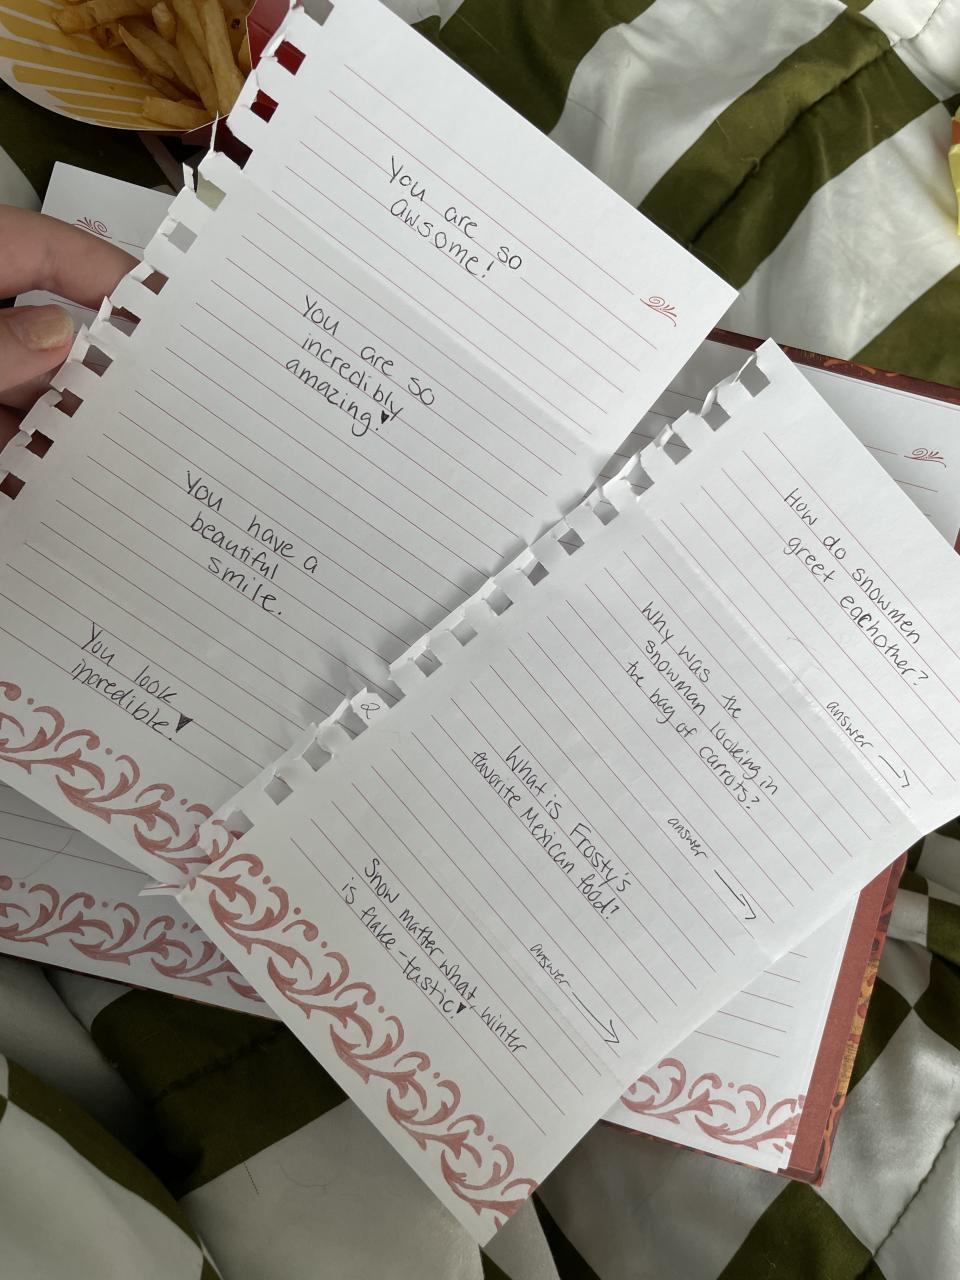 You are so
awsome!
You are so
incredibly
amazing!
You have a
beautiful
smile.
You look
incredible!
2
How do snowmen
greet eachother?
answer
Why was the
snowman looking in
the bag of carrots?
answer
What is Frosty's
favorite Mexican food?
answer
Snow matter what, winter
is flake-tastic!